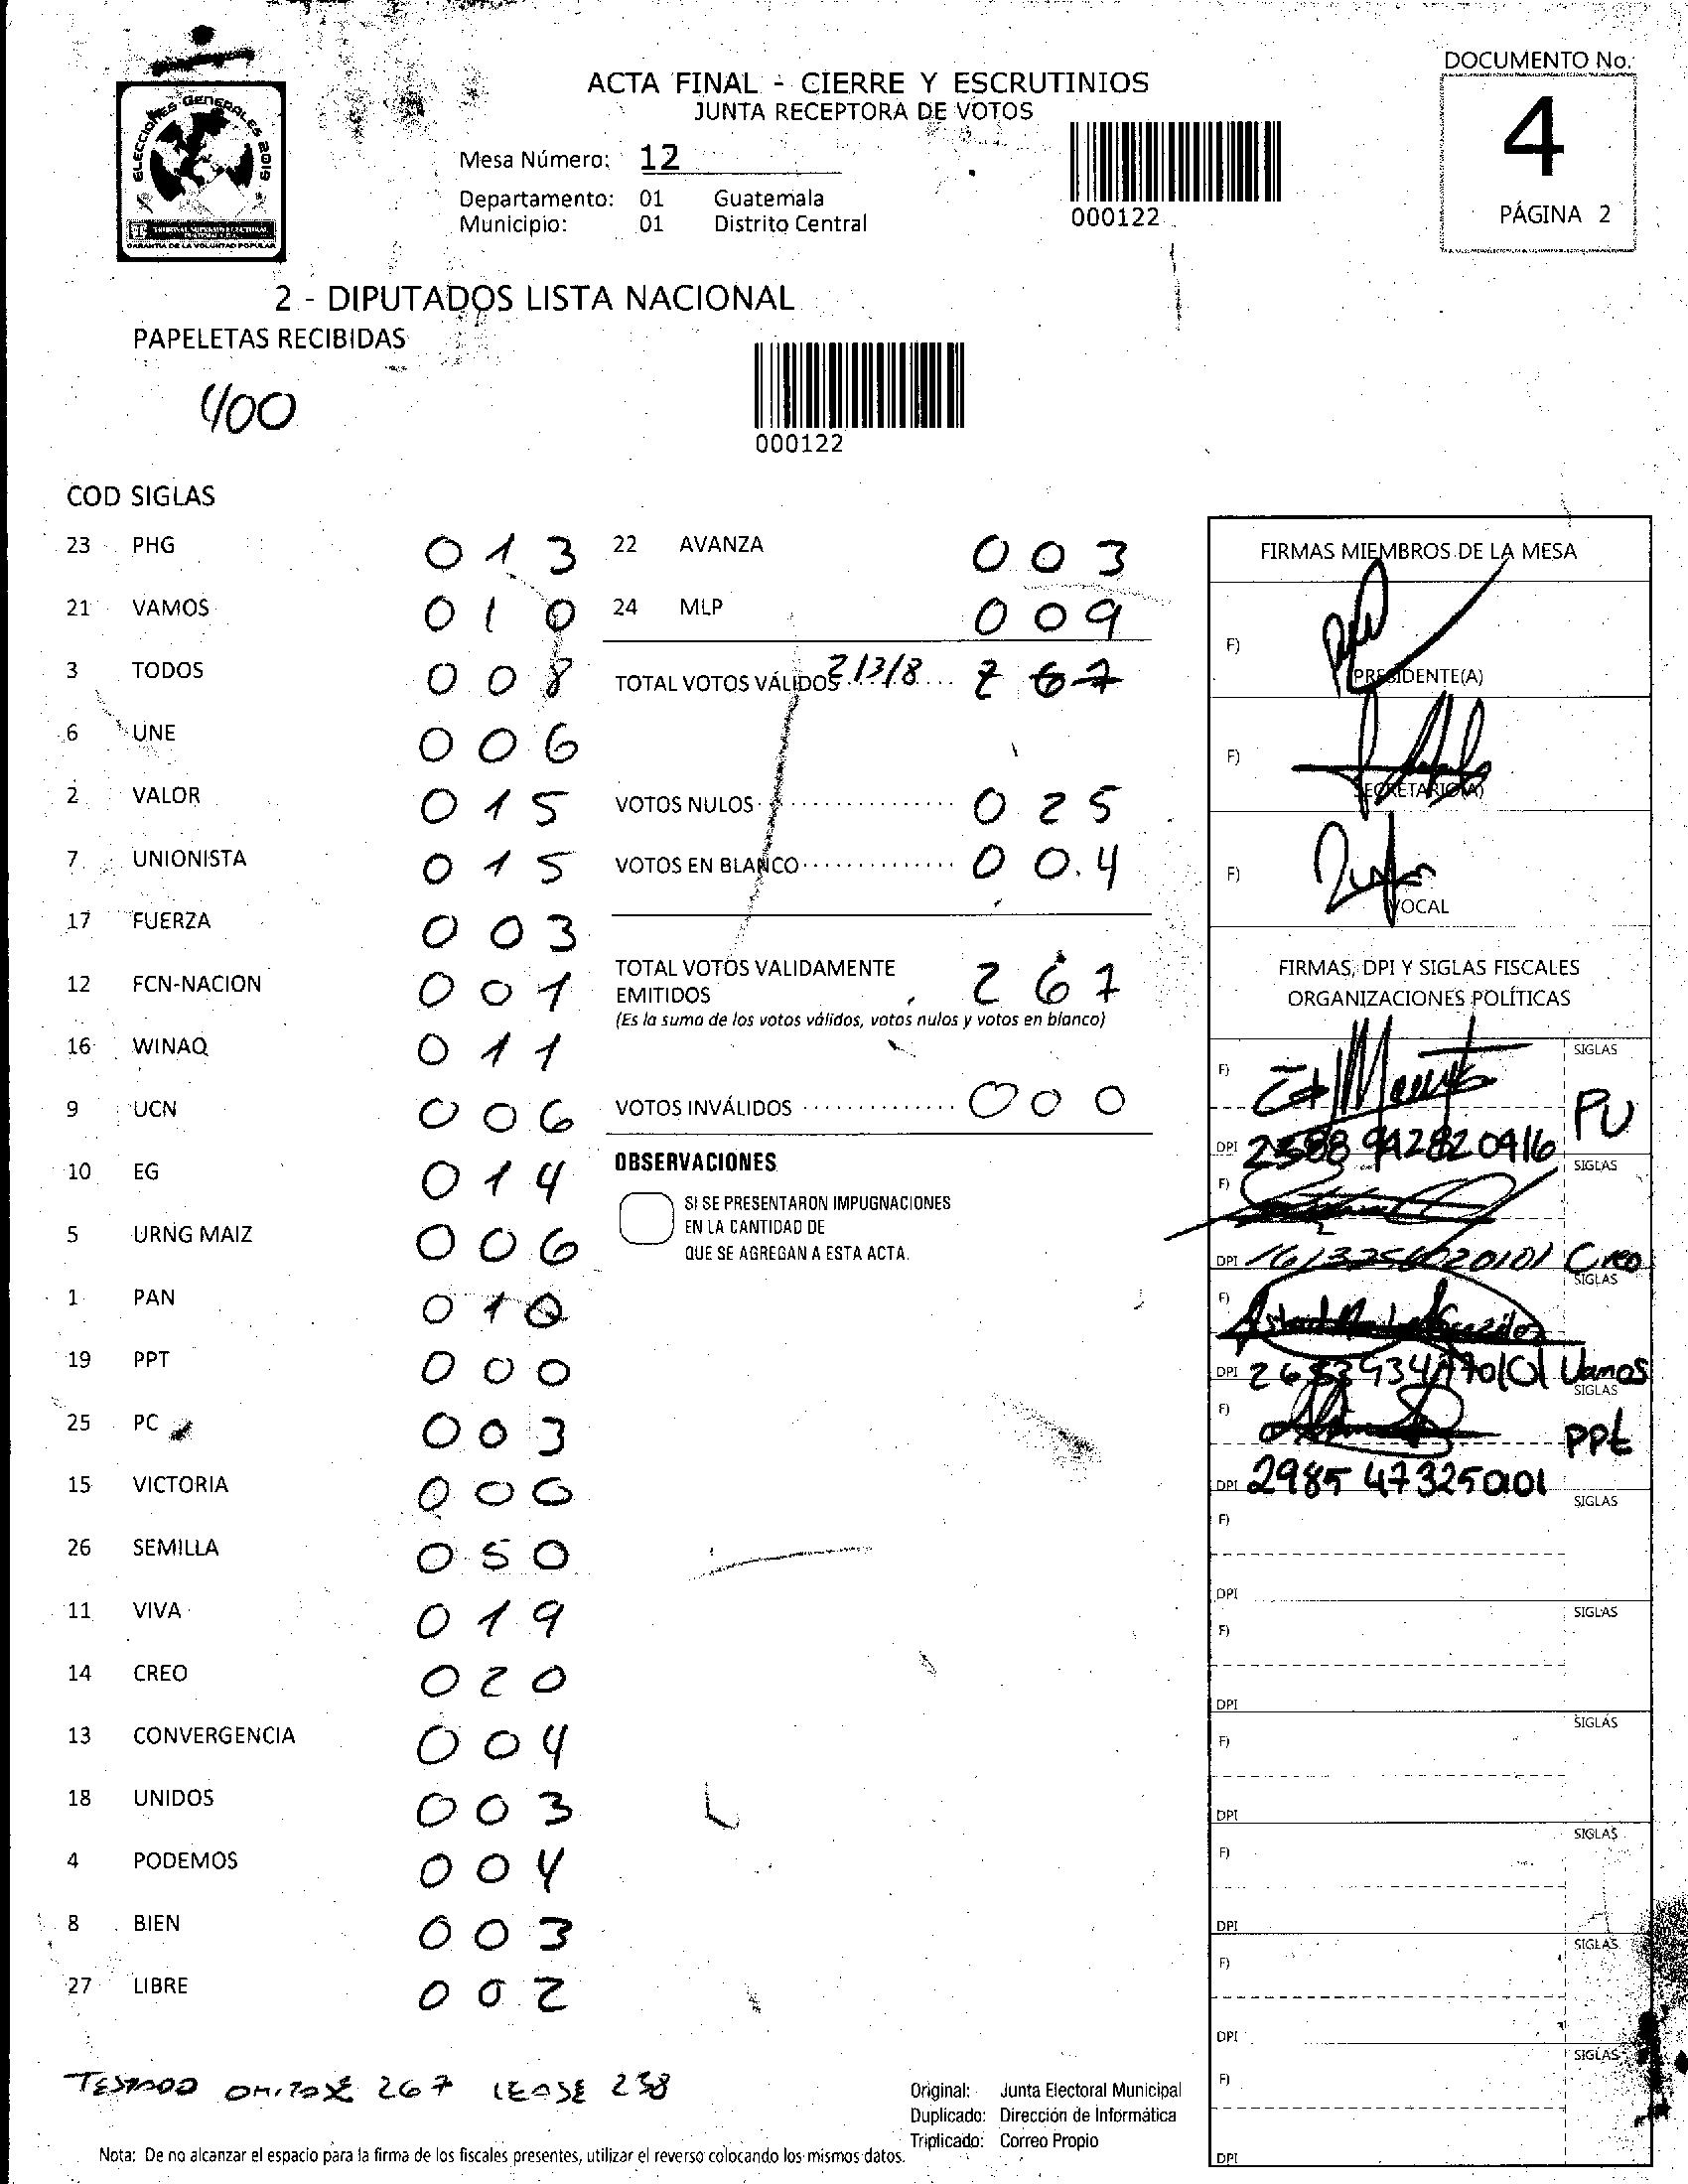 ELECCIONES GENERALES 2019
TRIBUNAL SUPREMO ELECTORAL
GARANTIA DE LA VOLUNTAD POPULAR
ACTA FINAL - CIERRE Y ESCRUTINIOS
JUNTA RECEPTORA DE VOTOS
Mesa Número: 12
Departamento: 01 Guatemala
Municipio: 01 Distrito Central
000122
DOCUMENTO No.
4
PÁGINA 2
2 - DIPUTADOS LISTA NACIONAL
PAPELETAS RECIBIDAS
400
000122
COD SIGLAS
23 PHG 013
21 VAMOS 010
3 TODOS 008
6 UNE 006
2 VALOR 015
7 UNIONISTA 015
17 FUERZA 003
12 FCN-NACION 001
16 WINAQ 011
9 UCN 006
10 EG 014
5 URNG MAIZ 006
1 PAN 010
19 PPT 000
25 PC 003
15 VICTORIA 000
26 SEMILLA 050
11 VIVA 019
14 CREO 020
13 CONVERGENCIA 004
18 UNIDOS 003
4 PODEMOS 004
8 BIEN 003
27 LIBRE 002
22 AVANZA 003
24 MLP 009
TOTAL VOTOS VÁLIDOS 2/3/8 267
VOTOS NULOS 025
VOTOS EN BLANCO 004
TOTAL VOTOS VALIDAMENTE
EMITIDOS 267
(Es la suma de los votos válidos, votos nulos y votos en blanco)
VOTOS INVÁLIDOS 000
OBSERVACIONES
SI SE PRESENTARON IMPUGNACIONES
EN LA CANTIDAD DE
QUE SE AGREGAN A ESTA ACTA.
FIRMAS MIEMBROS DE LA MESA
F)
PRESIDENTE(A)
F)
SECRETARIO(A)
F)
VOCAL
FIRMAS, DPI Y SIGLAS FISCALES
ORGANIZACIONES POLÍTICAS
F) SIGLAS
PU
DPI 2588 942820416
F) SIGLAS
DPI Creo
F) SIGLAS
DPI Vamos
F) SIGLAS
ppt
DPI 2985 473250101
F) SIGLAS
DPI
F) SIGLAS
DPI
F) SIGLAS
DPI
F) SIGLAS
DPI
F) SIGLAS
DPI
F) SIGLAS
DPI
TESTADO OMITASE 267 LEASE 238
Original: Junta Electoral Municipal
Duplicado: Dirección de Informática
Triplicado: Correo Propio
Nota: De no alcanzar el espacio para la firma de los fiscales presentes, utilizar el reverso colocando los mismos datos.